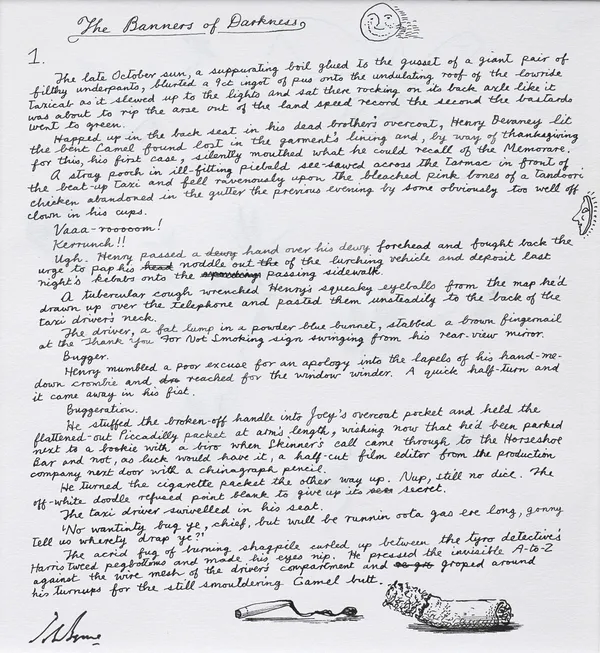 The Banners of Darkness
1.
The late October sun, a suppurating boil glued to the gusset of a giant pair of
filthy underpants, blurted a 9ct ingot of pus onto the undulating roof of the lowride
taxicab as it slewed up to the lights and sat there rocking on its back axle like it
was about to rip the arse out of the land speed record the second the bastards
went to green.
Happed up in the back seat in his dead brother's overcoat, Henry Devaney lit
the bent Camel found lost in the garment's lining and, by way of thanksgiving
for this, his first case, silently mouthed what he could recall of the Memorare.
A stray pooch in ill-fitting piebald see-sawed across the tarmac in front of
the beat-up taxi and fell ravenously upon the bleached pink bones of a tandoori
chicken abandoned in the gutter the previous evening by some obviously too well off
clown in his cups.
Vaaa-rooooom!
Kerrunch!!
Ugh. Henry passed a dewy hand over his dewy forehead and fought back the
urge to pap his head noddle out the of the lurching vehicle and deposit last
night's kebabs onto the passing sidewalk.
A tubercular cough wrenched Henry's squeaky eyeballs from the map he'd
drawn up over the telephone and pasted them unsteadily to the back of the
taxi driver's neck.
The driver, a fat lump in a powder blue bunnet, stabbed a brown fingernail
at the Thank You For Not Smoking sign swinging from his rear-view mirror.
Bugger.
Henry mumbled a poor excuse for an apology into the lapels of his hand-me-
down crombie and reached for the window winder. A quick half-turn and
it came away in his fist.
Buggeration.
He stuffed the broken-off handle into Joey's overcoat pocket and held the
flattened-out Piccadilly packet at arm's length, wishing now that he'd been parked
next to a bookie with a biro when Skinner's call came through to the Horseshoe
Bar and not, as luck would have it, a half-cut film editor from the production
company next door with a chinagraph pencil.
He turned the cigarette packet the other way up. Nup, still no dice. The
off-white doodle refused point blank to give up its secret.
The taxi driver swivelled in his seat.
'No wantinty bug ye, chief, but wull be runnin oota gas ere long, gonny
tell us wherety drap ye?'
The acrid fug of burning shagpile curled up between the tyro detective's
Harris tweed pegbottoms and made his eyes nip. He pressed the invisible A-to-Z
against the wire mesh of the driver's compartment and groped around
his turnups for the still smouldering Camel butt.